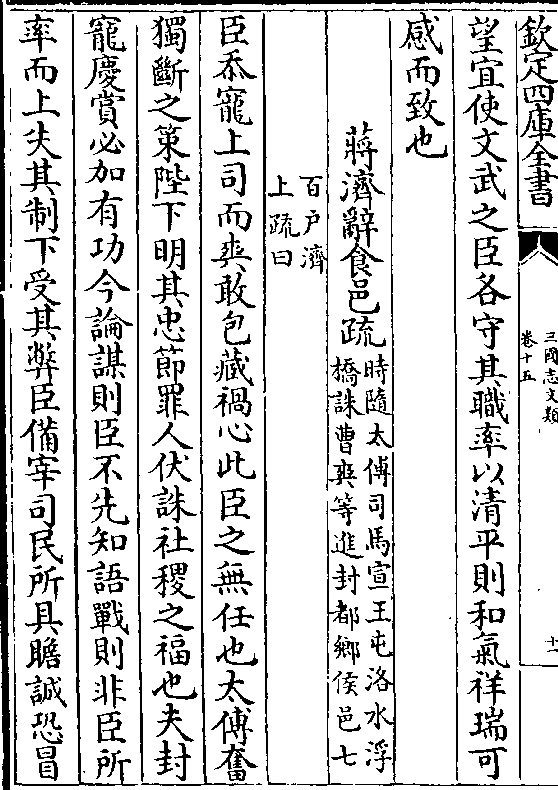 欽定四庫全書
三國志文類
卷十五
十一
望宜使文武之臣各守其職率以清平則和氣祥瑞可
感而致也
蔣濟辭食邑疏時隨太傅司馬宣王屯洛水浮
橋誅曹爽等進封都鄉侯邑七
百户濟
上疏曰
臣忝寵上司而爽敢包藏禍心此臣之無任也太傅奮
獨斷之策陛下明其忠節罪人伏誅社稷之福也夫封
寵慶賞必加有功今論謀則臣不先知語戰則非臣所
率而上失其制下受其弊臣備宰司民所具瞻誠恐冒